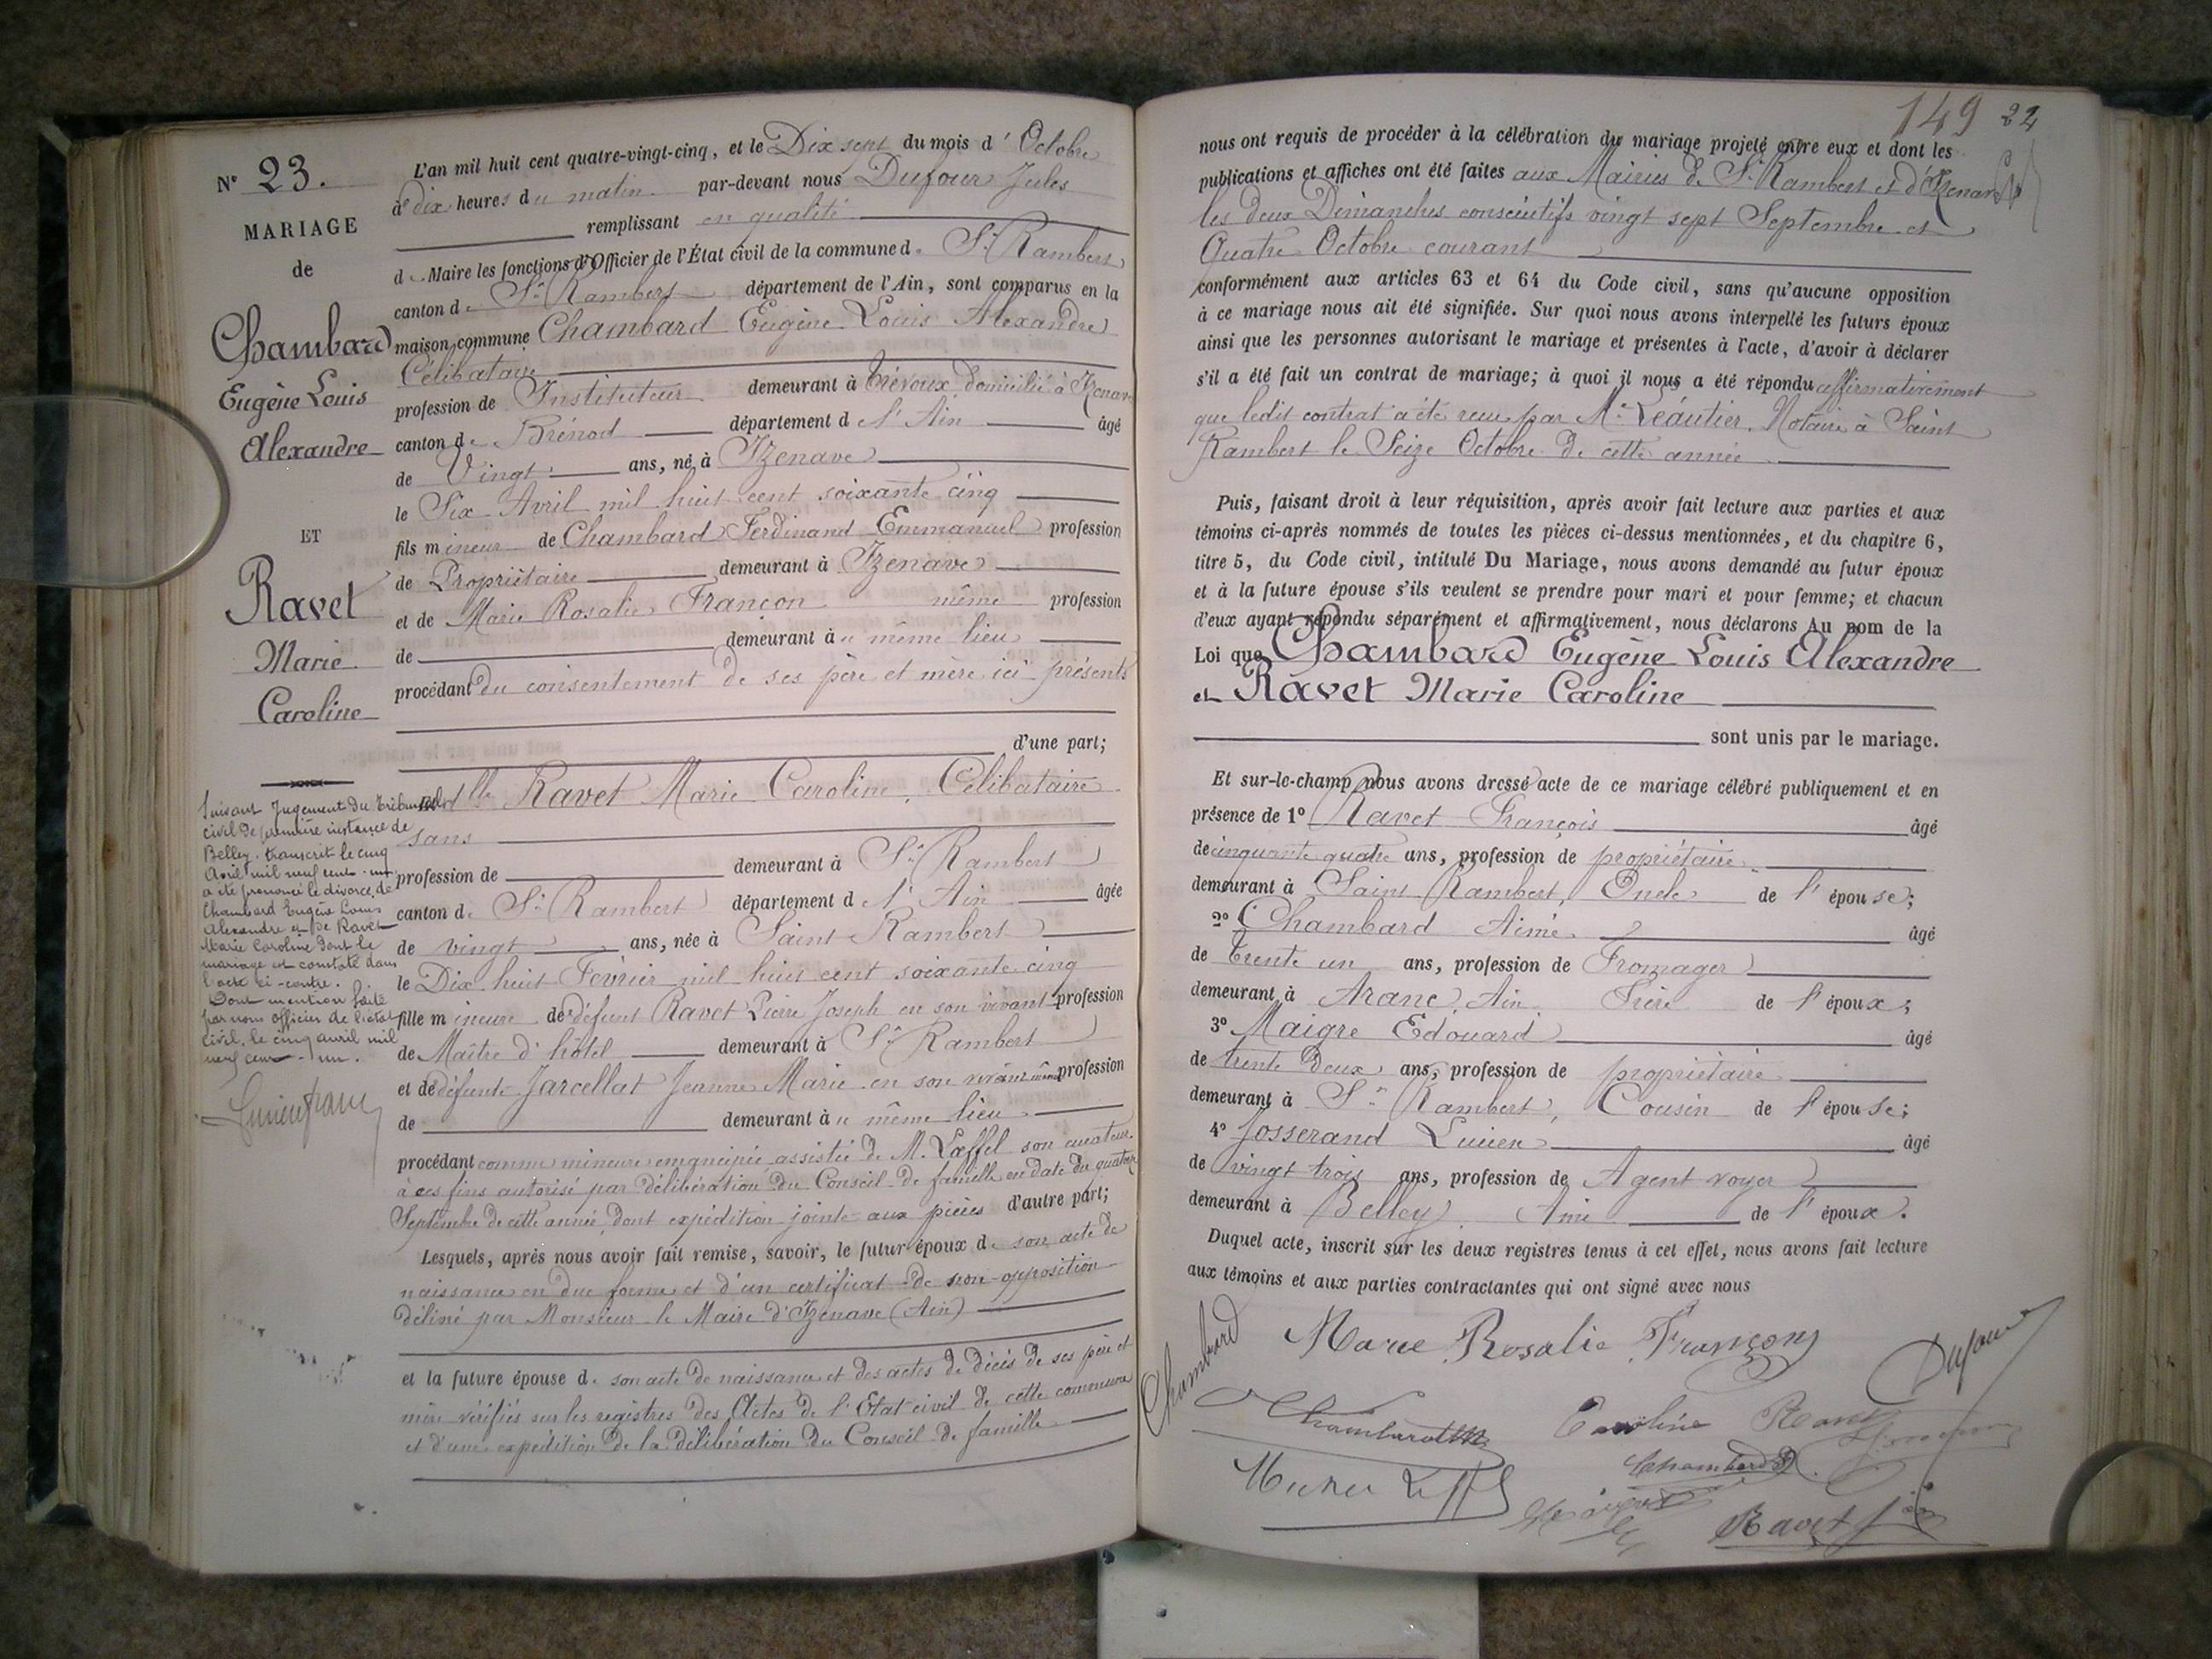 N° 23.
MARIAGE
de
Chambard
Eugène Louis
Alexandre
ET
Ravet
Marie
Caroline
Suivant Jugement du Tribunal
civil de première instance de
Belley. transcrit le cinq
Avril mil neuf cent un
a été prononcé le divorce de
Chambard Eugène Louis
Alexandre et de Ravet
Marie Caroline dont le
mariage est constaté dans
l'acte ci-contre.
Dont mention faite
par nous officier de l'état
civil, le cinq avril mil
neuf cent un.
L'an mil huit cent quatre-vingt-cinq, et le Dix sept du mois d'Octobre
à dix heures du matin par-devant nous Dufour Jules
remplissant en qualité
de Maire les fonctions d'Officier de l'État civil de la commune d. St Rambert
canton de St Rambert département de l'Ain, sont comparus en la
maison commune Chambard Eugène Louis Alexandre
Célibataire
profession de Instituteur demeurant à Trévoux, domicilié à Izenave
canton de Brénod département d l'Ain âgé
de Vingt ans, né à Izenave
le Six Avril mil huit cent soixante cinq
fils mineur de Chambard Ferdinand Emmanuel profession
de Propriétaire demeurant à Izenave
et de Marie Rosalie Françon même profession
de demeurant au même lieu
procédant du consentement de ses père et mère ici présents
d'une part;
Et dlle Ravet Marie Caroline, Célibataire
sans
profession de demeurant à St Rambert
canton de St Rambert département d l'Ain âgée
de vingt ans, née à Saint Rambert
le Dix huit Février mil huit cent soixante cinq
fille mineure de défunt Ravet Pierre Joseph en son vivant profession
de Maître d'hôtel demeurant à St Rambert
et de défunte Jarcellat Jeanne Marie en son vivant même profession
de demeurant au même lieu
procédant comme mineure emancipée assistée de M. Lœffel son curateur
à ces fins autorisé par délibération du Conseil de famille en date du quatorze
Septembre de cette année, dont expédition jointe aux pièces d'autre part;
Lesquels, après nous avoir fait remise, savoir, le futur époux de son acte de
naissance en due forme et d'un certificat de non-opposition
délivré par Monsieur le Maire d'Izenave (Ain)
et la future épouse d. son acte de naissance et des actes de décès de ses père et
mère vérifiés sur les registres des Actes de l'Etat civil de cette commune
et d'une expédition de la délibération du Conseil de famille
149 22
nous ont requis de procéder à la célébration du mariage projeté entre eux et dont les
publications et affiches ont été faites aux Mairies de St Rambert et d'Izenave
les deux Dimanches consécutifs vingt sept Septembre et
Quatre Octobre courant
conformément aux articles 63 et 64 du Code civil, sans qu'aucune opposition
à ce mariage nous ait été signifiée. Sur quoi nous avons interpellé les futurs époux
ainsi que les personnes autorisant le mariage et présentes à l'acte, d'avoir à déclarer
s'il a été fait un contrat de mariage; à quoi il nous a été répondu affirmativement
que ledit contrat a été reçu par Me Léautier Notaire à Saint
Rambert le Seize Octobre de cette année
Puis, faisant droit à leur réquisition, après avoir fait lecture aux parties et aux
témoins ci-après nommés de toutes les pièces ci-dessus mentionnées, et du chapitre 6,
titre 5, du Code civil, intitulé Du Mariage, nous avons demandé au futur époux
et à la future épouse s'ils veulent se prendre pour mari et pour femme; et chacun
d'eux ayant répondu séparément et affirmativement, nous déclarons Au nom de la
Loi que Chambard Eugène Louis Alexandre
et Ravet Marie Caroline
sont unis par le mariage.
Et sur-le-champ nous avons dressé acte de ce mariage célébré publiquement et en
présence de 1° Ravet François âgé
de cinquante quatre ans, profession de propriétaire
demeurant à Saint Rambert, Oncle de l'épouse;
2° Chambard Aimé âgé
de Trente un ans, profession de Fromager
demeurant à Aranc, Ain Frère de l'époux;
3° Maigre Edouard âgé
de trente Deux ans, profession de propriétaire
demeurant à St Rambert, Cousin de l'épouse;
4° Josserand Lucien âgé
de vingt trois ans, profession de Agent voyer
demeurant à Belley. Ami de l'époux.
Duquel acte, inscrit sur les deux registres tenus à cet effet, nous avons fait lecture
aux témoins et aux parties contractantes qui ont signé avec nous
Chambard Marie Rosalie Françon Dufour
Caroline Ravet
Chambard
Ravet